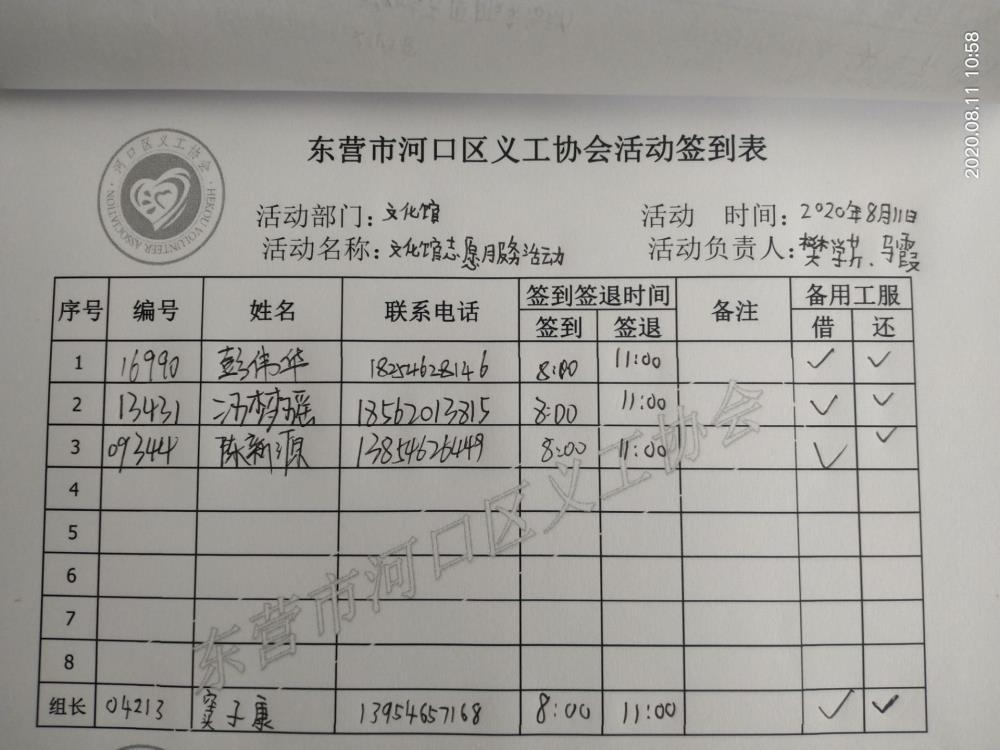 2020.08.11 10:58
东营市河口区义工协会活动签到表
河口区义工协会
HEKOU VOLUNTEER ASSOCIATION
活动部门：文化馆 活动 时间：2020年8月11日
活动名称：文化馆志愿服务活动 活动负责人：樊学芹、马霞
序号 编号 姓名 联系电话 签到签退时间 备注 备用工服
签到 签退 借 还
1 16990 彭伟华 18254628146 8:00 11:00 ✓ ✓
2 13431 冯梦瑶 18562013815 8:00 11:00 ✓ ✓
3 093444 陈新源 13854626449 8:00 11:00 ✓ ✓
4
5
6
7
8
组长 04213 窦子康 13954657168 8:00 11:00 ✓ ✓
东营市河口区义工协会